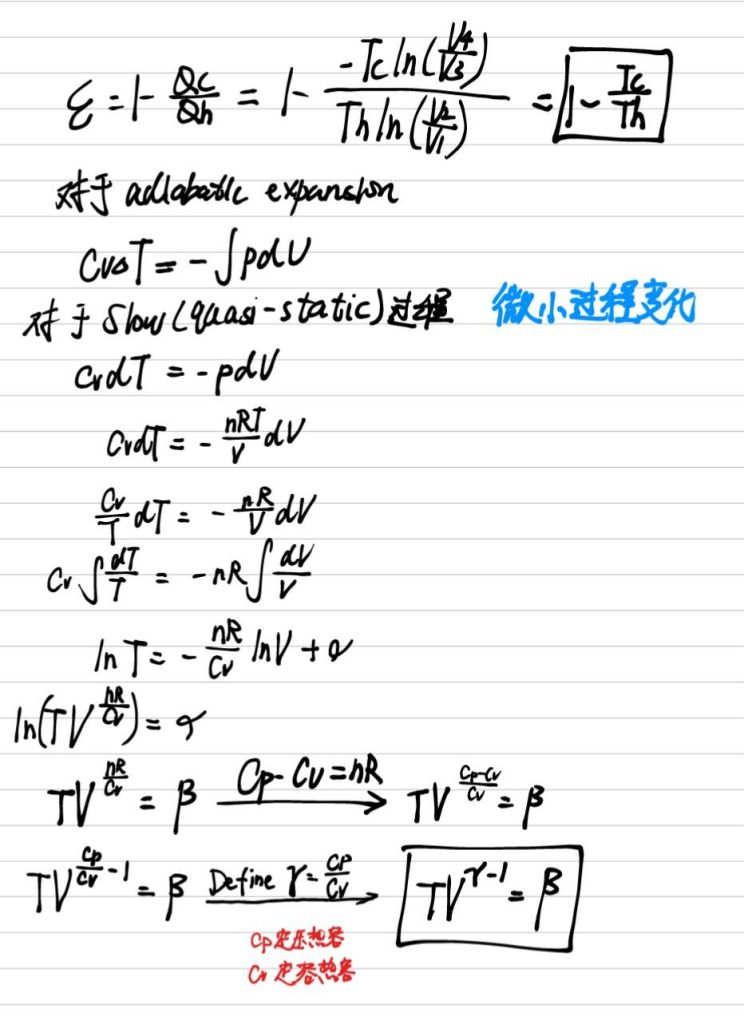 ε = 1 - Qc/Qh = 1 - (-Tc ln(V4/V3))/(Th ln(V2/V1)) = 1 - Tc/Th
对于 adiabatic expansion
CvΔT = -∫pdV
对于 Slow (quasi-static) 过程 微小过程变化
CvdT = -pdV
CvdT = - nRT/V dV
Cv/T dT = - nR/V dV
Cv ∫ dT/T = -nR ∫ dV/V
ln T = - nR/Cv lnV + α
ln(TV^(nR/Cv)) = α
TV^(nR/Cv) = β Cp-Cv=nR → TV^((Cp-Cv)/Cv) = β
TV^(Cp/Cv -1) = β Define γ = Cp/Cv → TV^(γ-1) = β
Cp 定压热容
Cv 定容热容